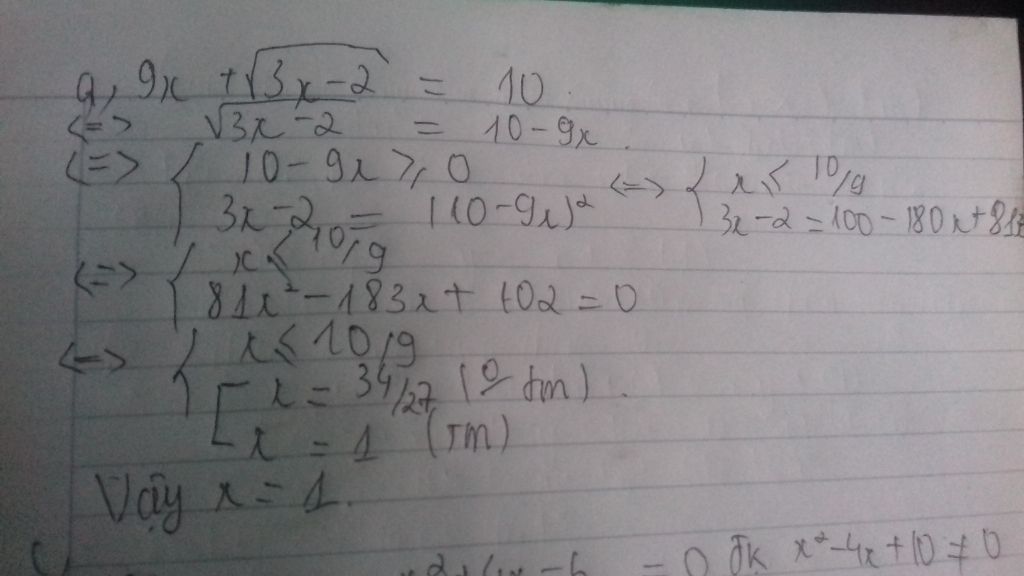 a, 9x + √3x-2 = 10.
<=> √3x-2 = 10-9x.
<=> { 10-9x ⩾ 0 <=> { x ⩽ 10/9
3x-2 = (10-9x)² 3x-2 = 100-180x+81x
<=> { x ⩽ 10/9
81x²-183x+102 = 0
<=> { x ⩽ 10/9
[ x = 34/27 (0 tm).
x = 1 (Tm)
Vậy x = 1.
= 0 đk x²-4x+10 ≠ 0